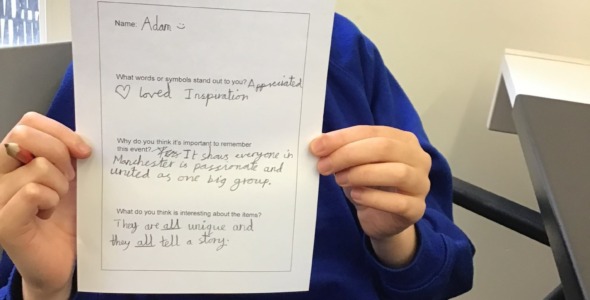 Name: Adam
What words or symbols stand out to you? Appreciated
♡ Loved Inspiration
Why do you think it's important to remember
this event? It shows everyone in
Manchester is passionate and
united as one big group.
What do you think is interesting about the items?
They are all unique and
they all tell a story.